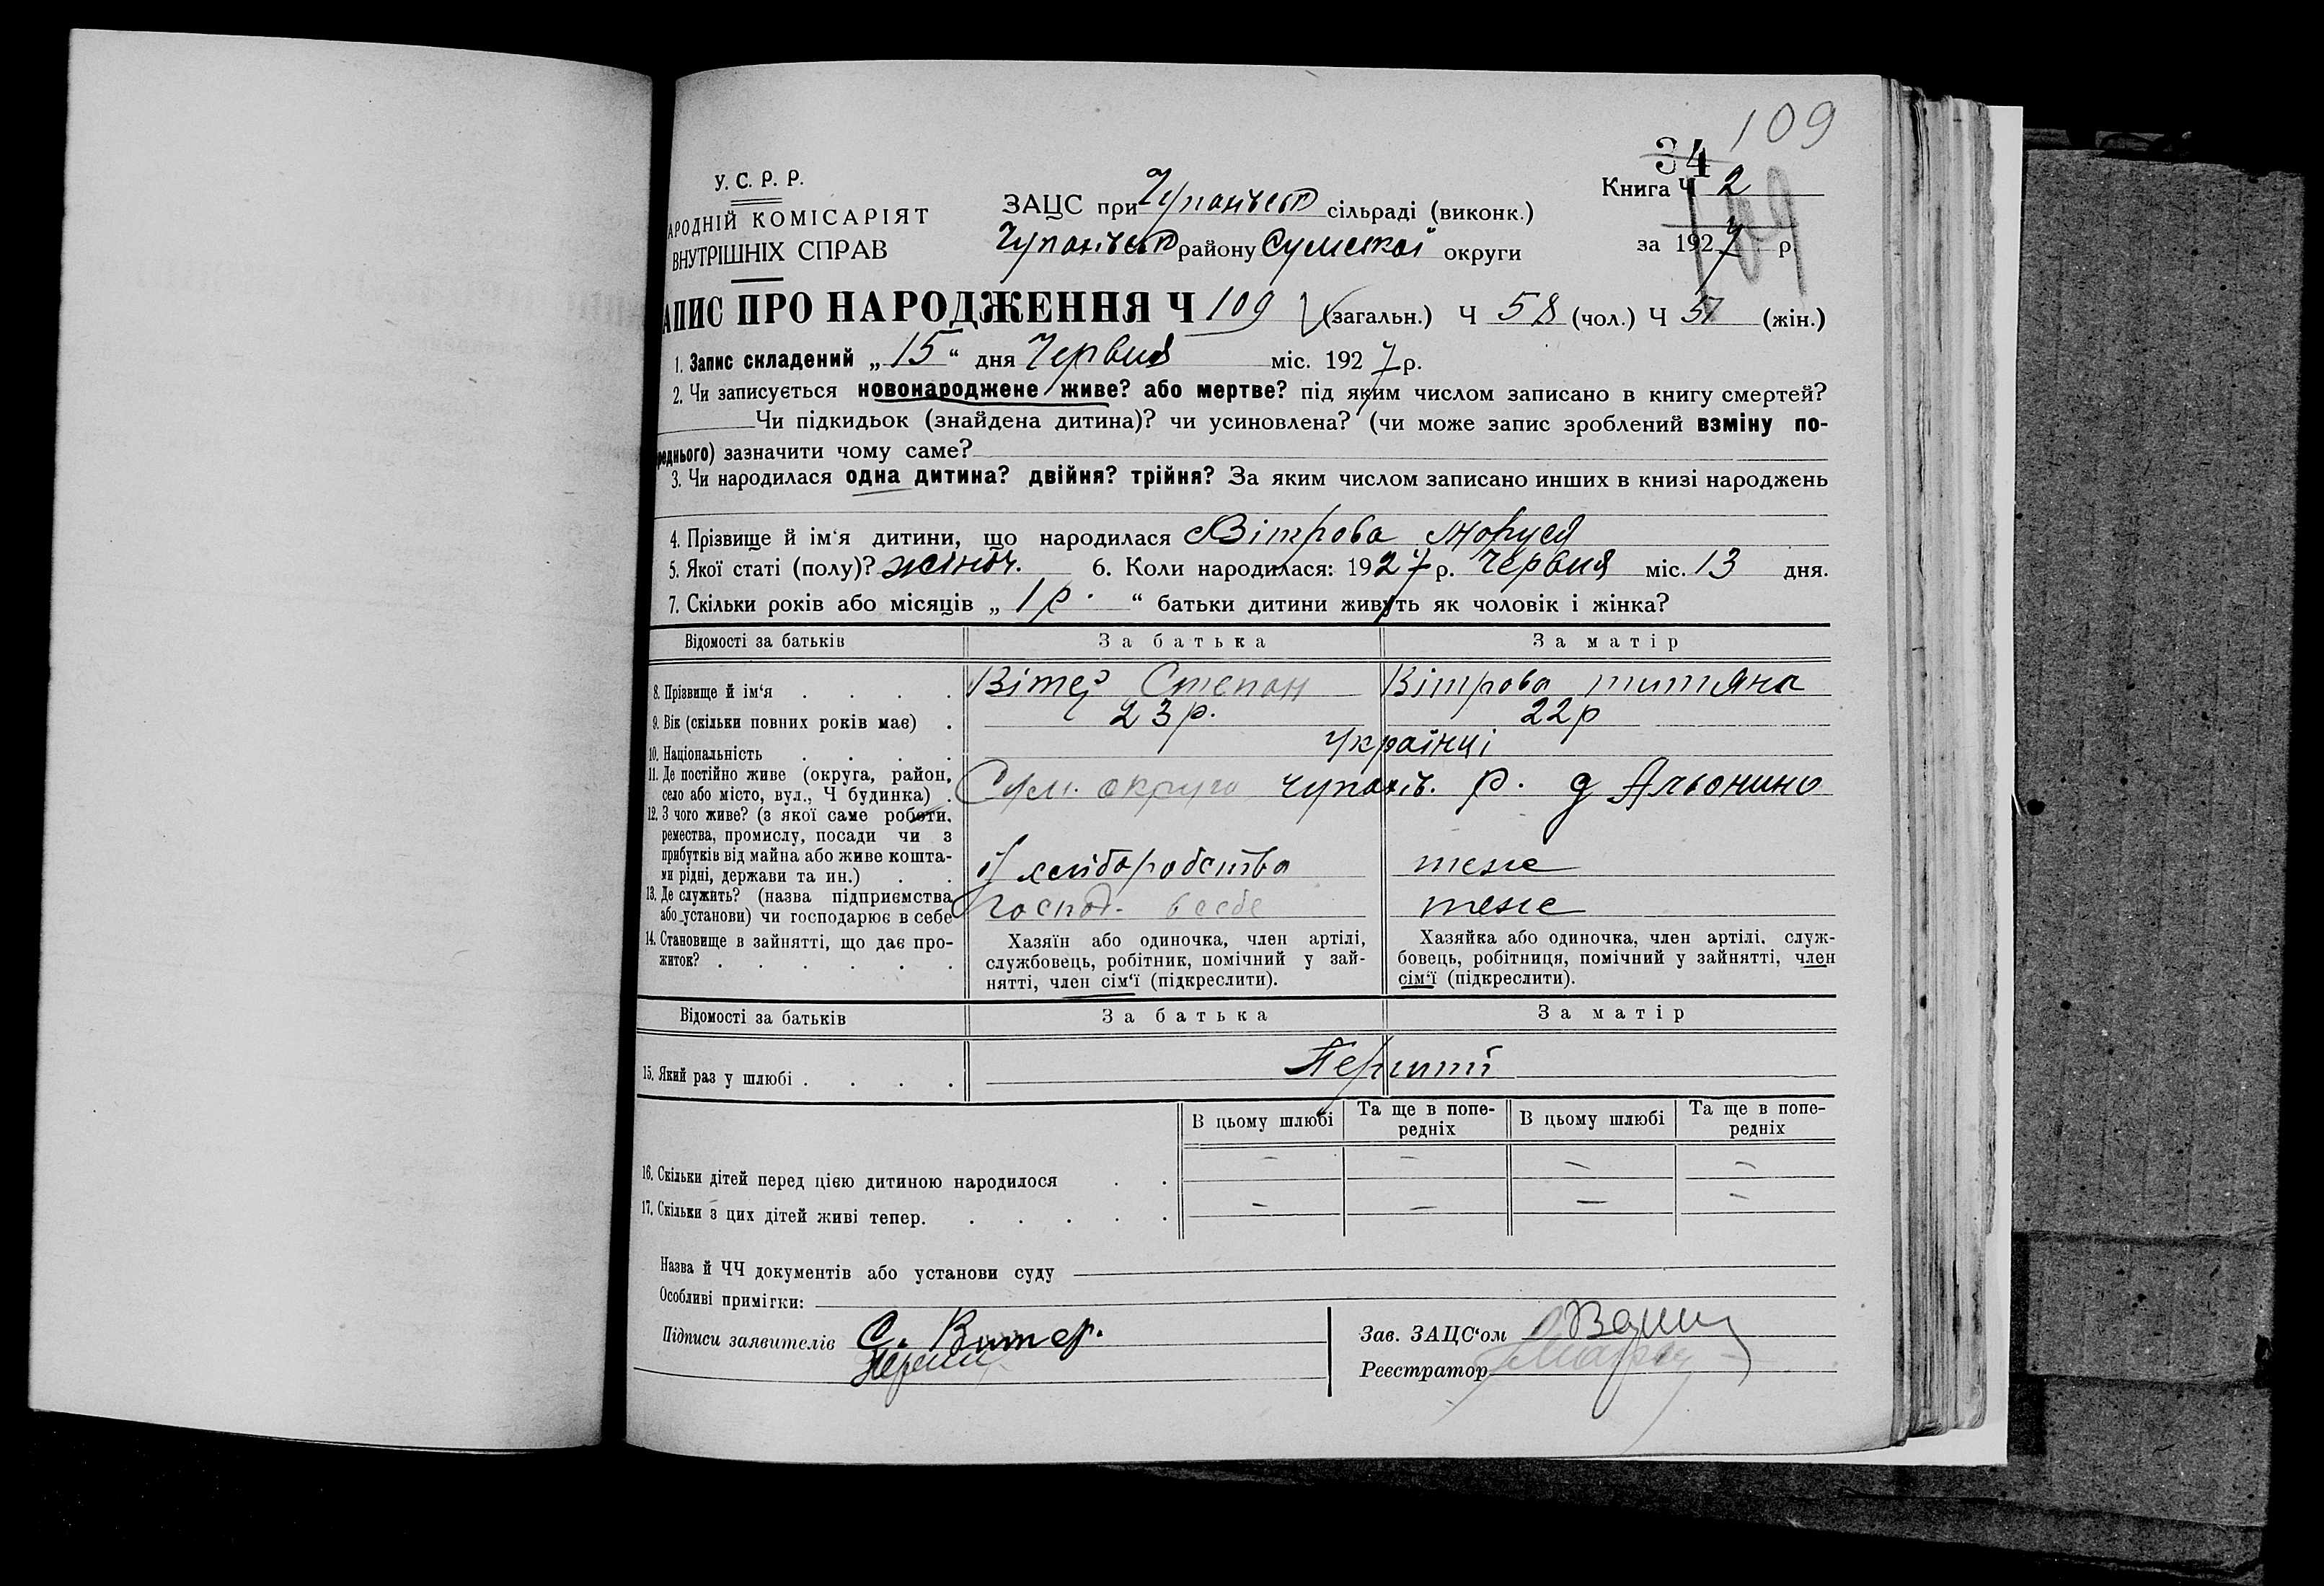 109
34
У. С. Р. Р.
АРОДНІЙ КОМІСАРІЯТ
ВНУТРІШНІХ СПРАВ
ЗАЦС при сільраді (виконк.)
району Сумської округи
Книга Ч 2
109
за 1927 р.
АПИС ПРО НАРОДЖЕННЯ Ч 109 (загальн.) Ч 58 (чол.) Ч 51 (жін.)
1. Запис складений „ 15 “ дня Червня міс. 1927 р.
2. Чи записується новонароджене живе? або мертве? під яким числом записано в книгу смертей?
Чи підкидьок (знайдена дитина)? чи усиновлена? (чи може запис зроблений взміну по-
реднього) зазначити чому саме?
3. Чи народилася одна дитина? двійня? трійня? За яким числом записано инших в книзі народжень
4. Прізвище й ім‘я дитини, що народилася Вітрова Маруся
5. Якої статі (полу)? жіноч. 6. Коли народилася: 1927 р. Червня міс. 13 дня.
7. Скільки років або місяців „ 1 р. “ батьки дитини живуть як чоловік і жінка?
Відомості за батьків За батька За матір
8. Прізвище й ім‘я . . . . Вітер Степан Вітрова Титяна
9. Вік (скільки повних років має) . 23 р. 22 р
10. Національність . . . . Українці
11. Де постійно живе (округа, район,
село або місто, вул., Ч будинка) . Сум. округа Чупахів. р. д Альонино
12. З чого живе? (з якої саме роботи,
ремества, промислу, посади чи з
прибутків від майна або живе кошта-
ми рідні, держави та ин.) . . з хліборобства теже
13. Де служить? (назва підприємства
або установи) чи господарює в себе Господ. в себе теже
14. Становище в зайнятті, що дає про-
житок? . . . . . .
Хазяїн або одиночка, член артілі,
службовець, робітник, помічний у зай-
нятті, член сім‘ї (підкреслити).
Хазяйка або одиночка, член артілі, служ-
бовець, робітниця, помічний у зайнятті, член
сім‘ї (підкреслити).
Відомості за батьків За батька За матір
15. Який раз у шлюбі . . . .
В цьому шлюбі Та ще в попе- В цьому шлюбі Та ще в попе-
редніх редніх
16. Скільки дітей перед цією дитиною народилося . . – – – –
17. Скільки з цих дітей живі тепер. . . . . . – – – –
Назва й ЧЧ документів або установи суду
Особливі примігки:
Підписи заявителів С. Витер. Зав. ЗАЦС‘ом
Реєстратор